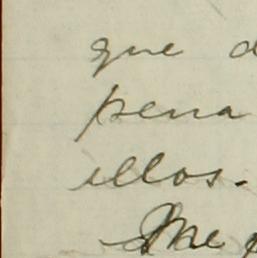 que
pena
ellos.
Me